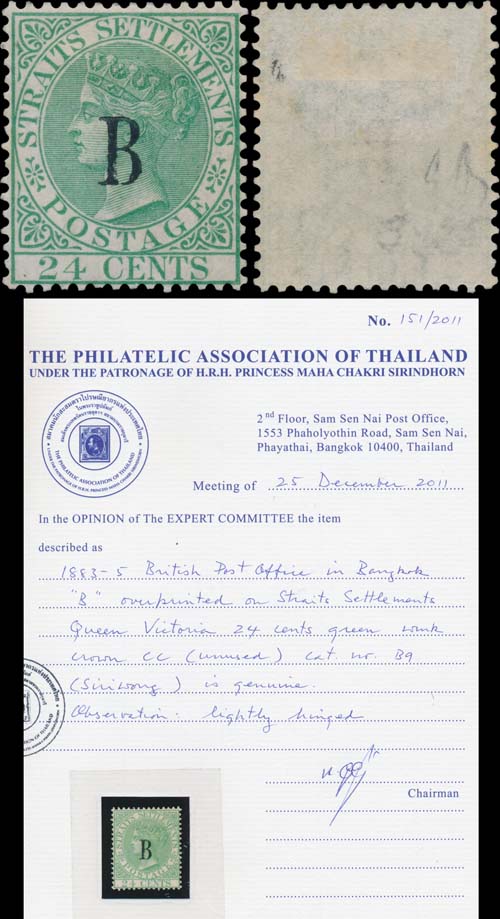 STRAITS SETTLEMENTS
B
POSTAGE
24 CENTS
No. 151/2011
THE PHILATELIC ASSOCIATION OF THAILAND
UNDER THE PATRONAGE OF H.R.H. PRINCESS MAHA CHAKRI SIRINDHORN
2nd Floor, Sam Sen Nai Post Office,
1553 Phaholyothin Road, Sam Sen Nai,
Phayathai, Bangkok 10400, Thailand
THE PHILATELIC ASSOCIATION OF THAILAND
Meeting of 25 December 2011
In the OPINION of The EXPERT COMMITTEE the item
described as
1883-5 British Post Office in Bangkok
"B" overprinted on Straits Settlements
Queen Victoria 24 cents green wmk
crown CC (unused) Cat. no. B9
(Siriwong) is genuine.
Observation: lightly hinged
Chairman
STRAITS SETTLEMENTS
B
POSTAGE
24 CENTS